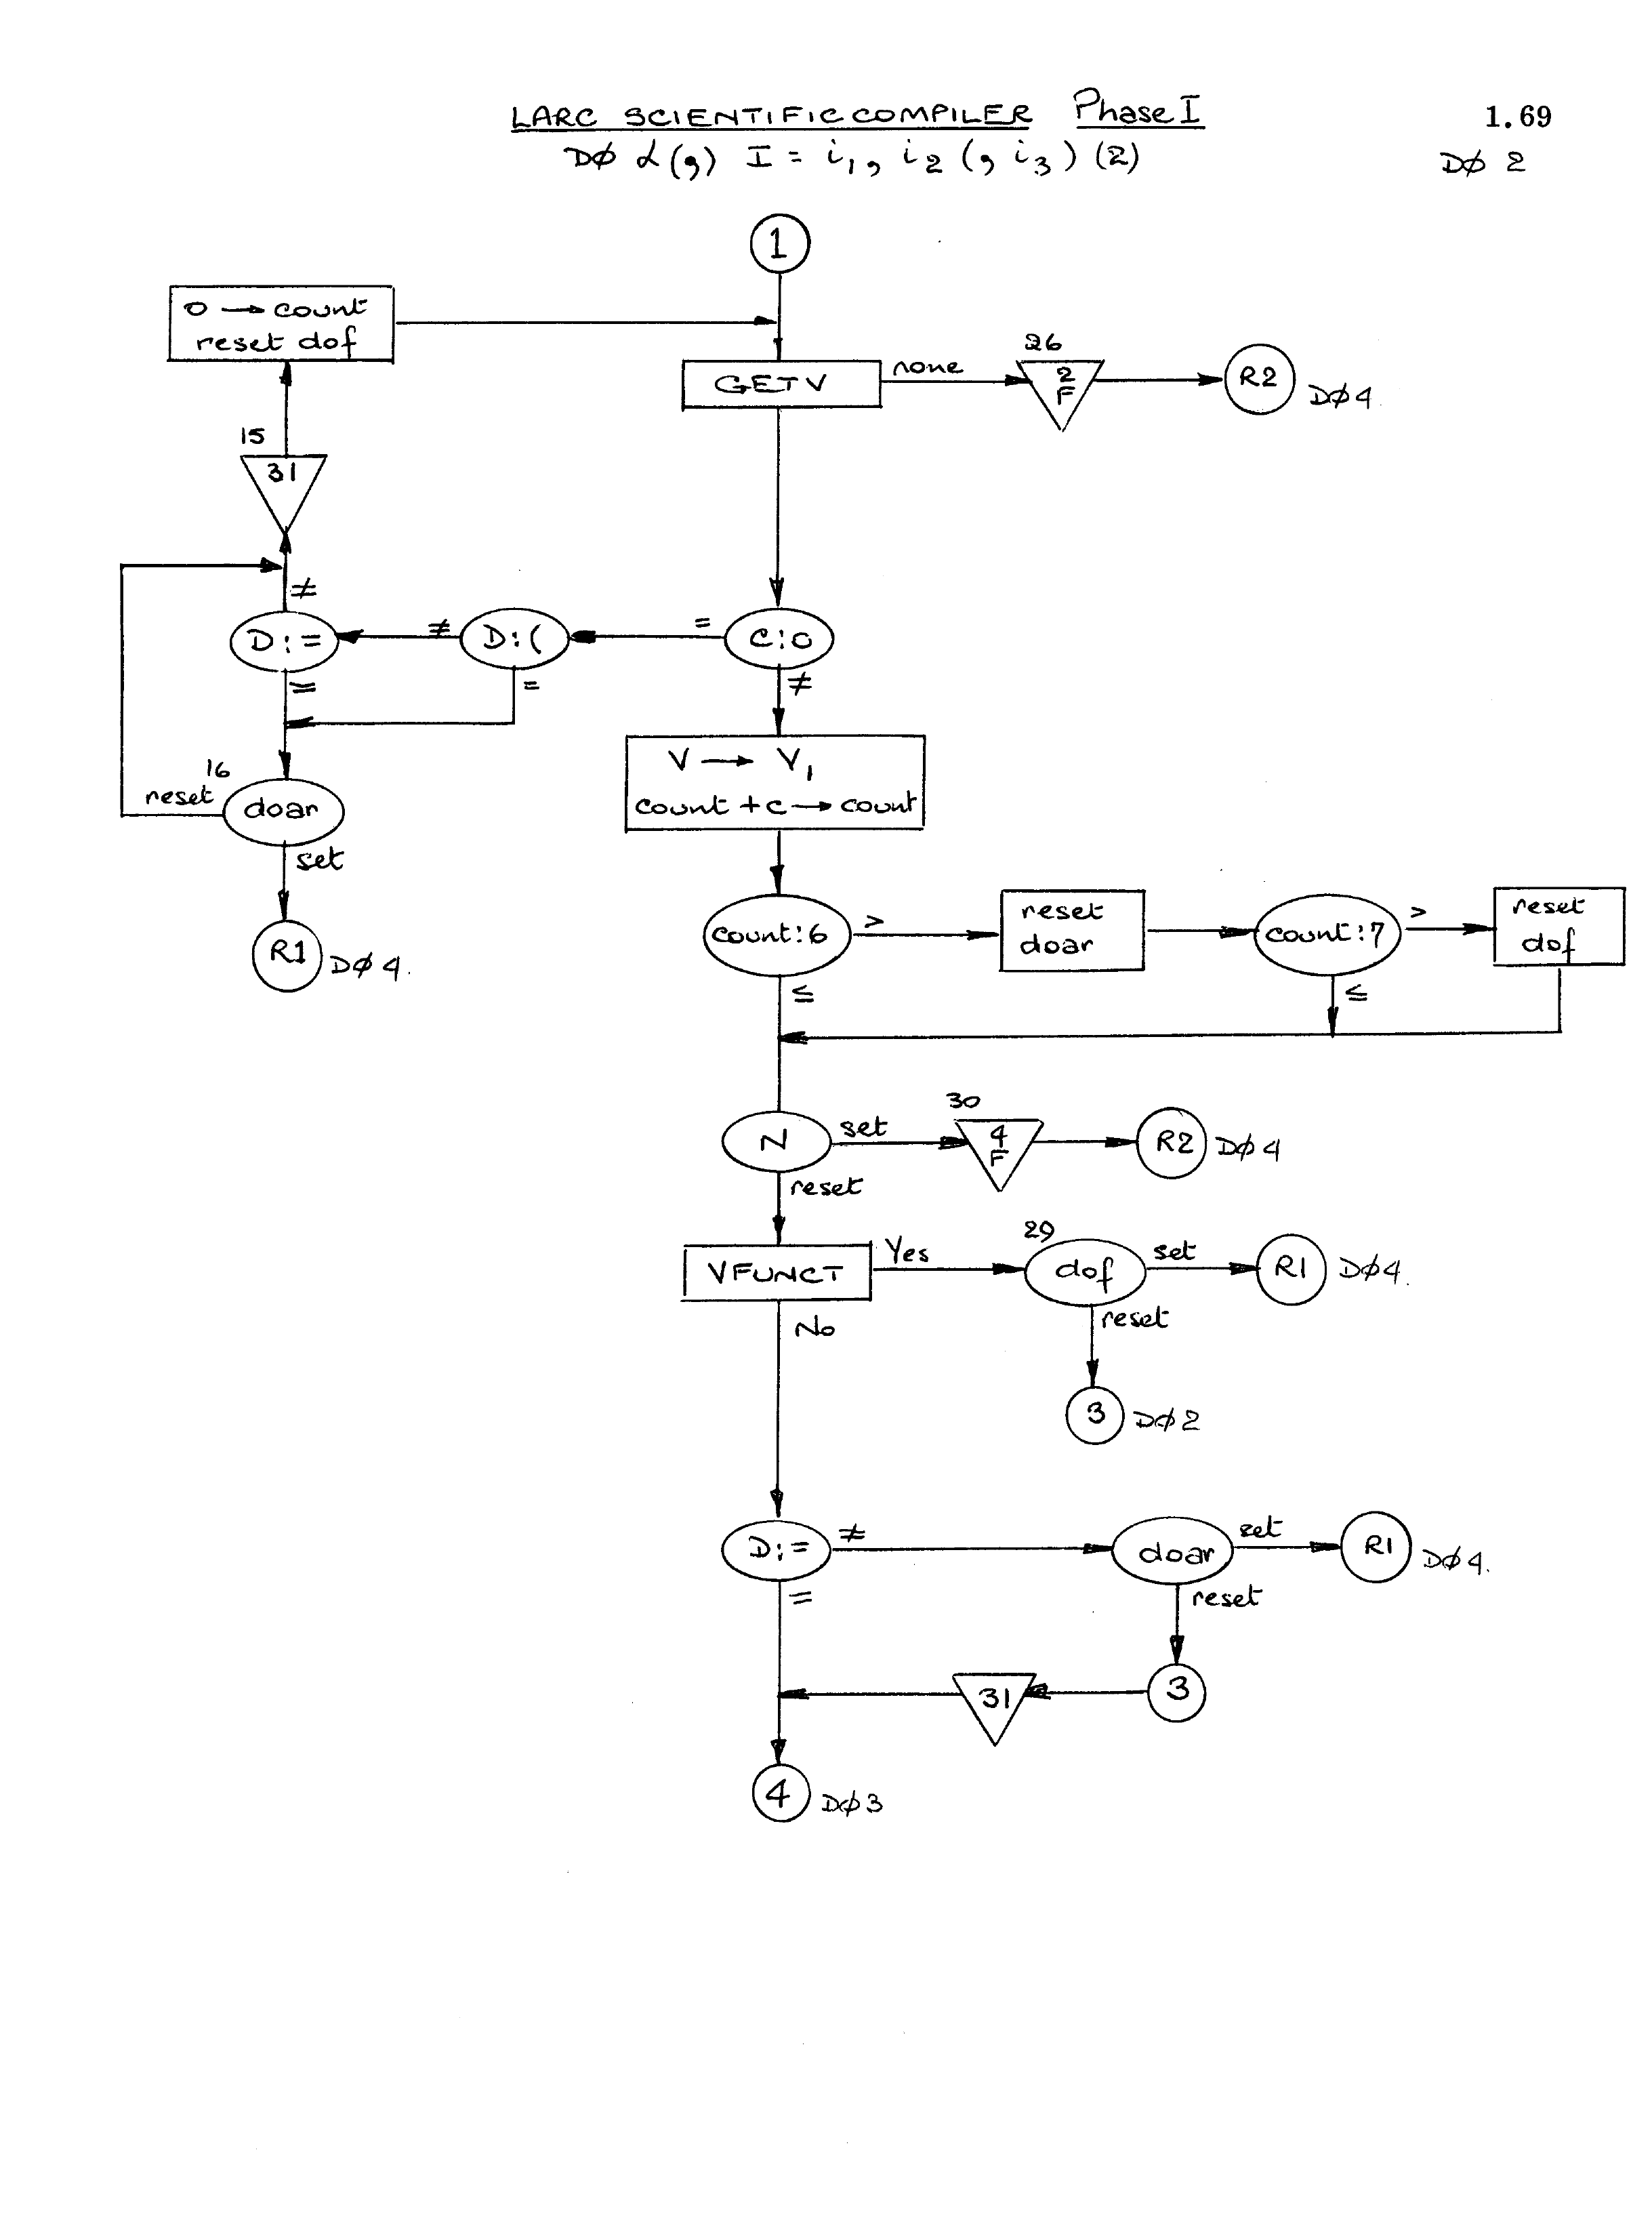 LARC SCIENTIFIC COMPILER Phase I
1.69
DØ α(,) I = i₁, i₂ (, i₃) (2)
DØ 2
1
0 → count
reset dof
GETV
none
26
2
F
R2
DØ4
15
31
≠
D:=
≠
D:(
=
C:0
=
=
≠
16
reset
doar
set
R1
DØ4.
V → V₁
count + c → count
count:6
>
reset
doar
count:7
>
reset
dof
≤
≤
N
set
30
4
F
R2
DØ4
reset
VFUNCT
Yes
29
dof
set
R1
DØ4.
No
reset
3
DØ2
D:=
≠
doar
set
R1
DØ4.
=
reset
31
3
4
DØ3